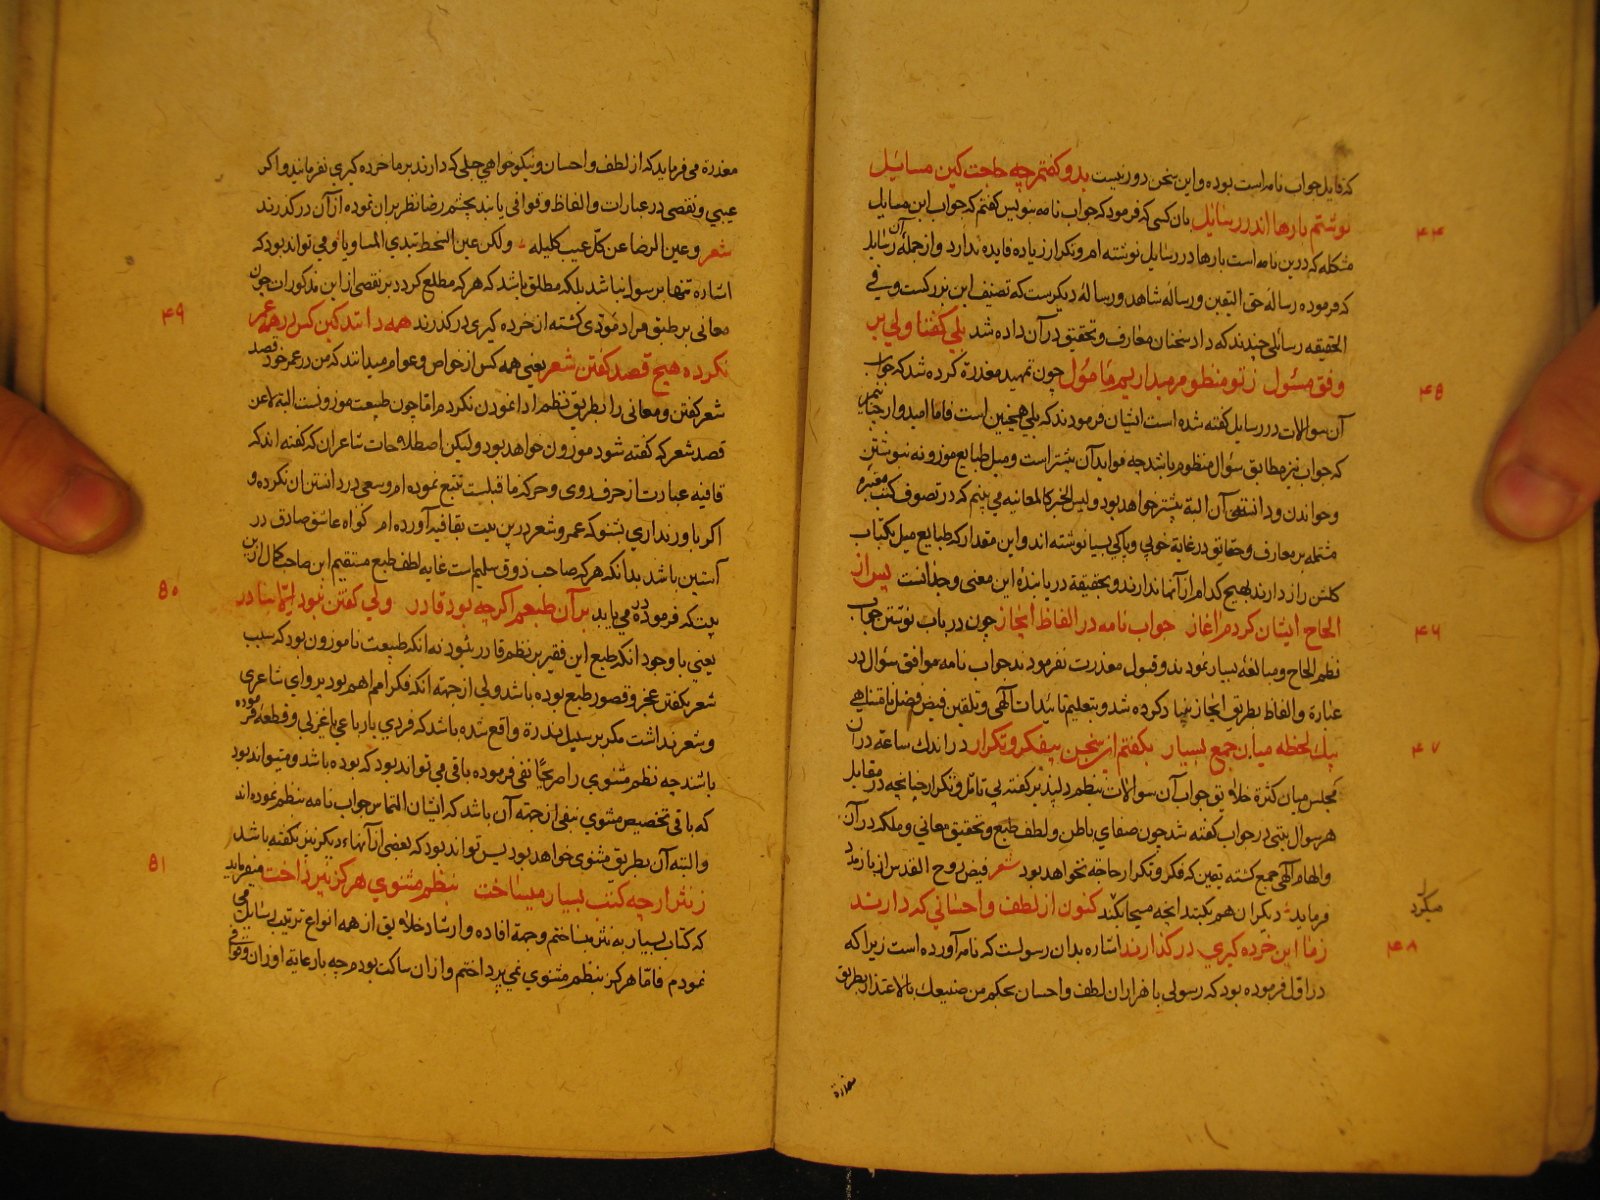 که قایل جواب نامه است بوده و این سخن دور نیست بدو کفتم چه حاجت کین مسائیل
نوشتم بارها اندر رسایل بان کسی که فرمود که جواب نامه بنویس کفتم که جواب این مسایل
۴۴
مشکله که درین نامه است بارها در رسایل نوشته ام و تکرار زیاده فایده ندارد و از جمله آن رسایل
که فرموده رسالهٔ حق الیقین و رسالهٔ شاهد و رسالهٔ دیکرست که تصنیف این بزرکست وفی
الحقیقه رسائلی چندند که داد سخنان معارف و تحقیق در آن داده شد بلی کفتا ولی بر
وفق مسئول ز تو منظوم میداریم مامول چون تمهید معذرة کرده شد که جواب
۴۵
آن سوالات در رسایل کفته شده است ایشان فرمودند که بلی همچنین است فاما امیدوار چنانیم
که جواب نیز مطابق سؤال منظوم باشد چه فواید آن بیشتر است و میل طبایع موزونه بنوشتن
و خواندن و دانستن آن البتة بیشتر خواهد بود و لیس الخبر کالمعاینه می بینم که در تصوف کتب معتبره
مشتمله بر معارف و حقایق در غایة خوبی و پاکی بسیا نوشته اند و این مقدار که طبایع میل بکتاب
کلشن راز دارند بهیچ کدام از آنها ندارند و بحقیقة دریابندهٔ این معنی وجدانست پس از
الحاح ایشان کردم اغاز جواب نامه در الفاظ ایجاز چون در باب نوشتن جواب
۴۶
نظم الحاح و مبالغهٔ بسیار نمودند و قبول معذرت نفرمودند جواب نامه موافق سؤال در
عبارة و الفاظ بطریق ایجاز بنیاد کرده شد و بتعلیم تائیدات آلهی و بتلقین فیض فضل نامتناهی
بیک لحظه میان جمع بسیار بکفتم این سخن بیفکر و تکرار در اندک ساعة در آن
۴۷
مجلس میان کثرة خلایق جواب آن سوالات بنظم دلپذیر کفته بی تامل و تکرار چنانچه در مقابل
هر سوال بیتی در جواب کفته شد چون صفای باطن و لطف طبع و تحقیق معانی و ملکه در آن
و الهام آلهی جمع کشته یقین که فکر و تکرار حاجة نخواهد بود شعر فیض روح القدس ار باز مدد
فرماید دیکران هم بکنند انچه مسیحا میکرد کنون از لطف و احسانی که دارند
زما این خرده کیری در کذارند اشاره بدان رسولست که نامه آورده است زیرا که
۴۸
در اول فرموده بود که رسولی با هزاران لطف و احسان بحکم من صنیعک بالاعتذار بطریق
معذرة
معذرة می فرماید که از لطف و احسان و نیکوخواهی جبلی که دارند بر ما خرده کیری نفرمانید و اکر
عیبی و نقصی در عبارات و الفاظ و قوافی یابند بچشم رضا نظر بران نموده از آن در کذرند
شعر و عین الرضا عن کل عیب کلیله ولکن عین السخط تبدی المساویا و می تواند بود که
اشاره تنها برسول نباشد بلکه مطلق باشد که هر که مطلع کردد بر نقصی از این مذکوران چون
معانی بر طبق مراد مودی کشته از خرده کیری در کذرند همه دانند کین کس در همه عمر
۴۹
نکرده هیچ قصد کفتن شعر یعنی همه کس از خواص و عوام میدانند که من در عمر خود قصد
شعر کفتن و معانی را بطریق نظم ادا نمودن نکردم اما چون طبیعت موزونست البتة لاعن
قصد شعر که کفته شود موزون خواهد بود ولیکن اصطلاحات شاعران که کفته اند که
قافیه عبارت از حرف روی و حرکه ما قبلست تتبع نموده ام و سعی در دانستن ان نکرده و
اکر باور نداری بشنو که عمر و شعر درین بیت بقافیه آورده ام کواه عاشق صادق در
آستین باشد بدانکه هر که صاحب ذوق سلیم است غایه لطف طبع مستقیم این صاحب کمال ازین
بیت که فرموده در می یابد بر آن طبعم اکر چه بود قادر ولی کفتن نبود الا بنادر
۵۰
یعنی با وجود انکه طبع این فقیر بر نظم قادر بود نه انکه طبیعت ناموزون بود که سبب
شعر بکفتن عجز و قصور طبع بوده باشد ولی از جهته انکه فکر امم اهم بود پروای شاعری
و شعر نداشت مکر بر سبیل ندرة واقع شده باشد که فردی یا رباعی یا غزلی و قطعهٔ فرموده
باشند چه نظم مثنوی را صریحًا نفی فرموده باقی می تواند بود که بوده باشد و میتواند بود
که باقی تخصیص مثنوی بنفی از جهته آن باشد که ایشان التماس جواب نامه بنظم نموده اند
و البته آن بطریق مثنوی خواهد بود پس تواند بود که بعضی از آنهاء دیکر نیز نکفته باشد
ز نثر ارچه کتب بسیار میساخت بنظم مثنوی هرکز نپرداخت میفرماید
۵۱
که کتاب بسیار به نثر میساختم و جهة افاده و ارشاد خلایق از همه انواع ترتیب رسایل می
نمودم فاما هرکز بنظم مثنوی نمی پرداختم و ازان ساکت بودم چه بارعایة اوزان و قوافی